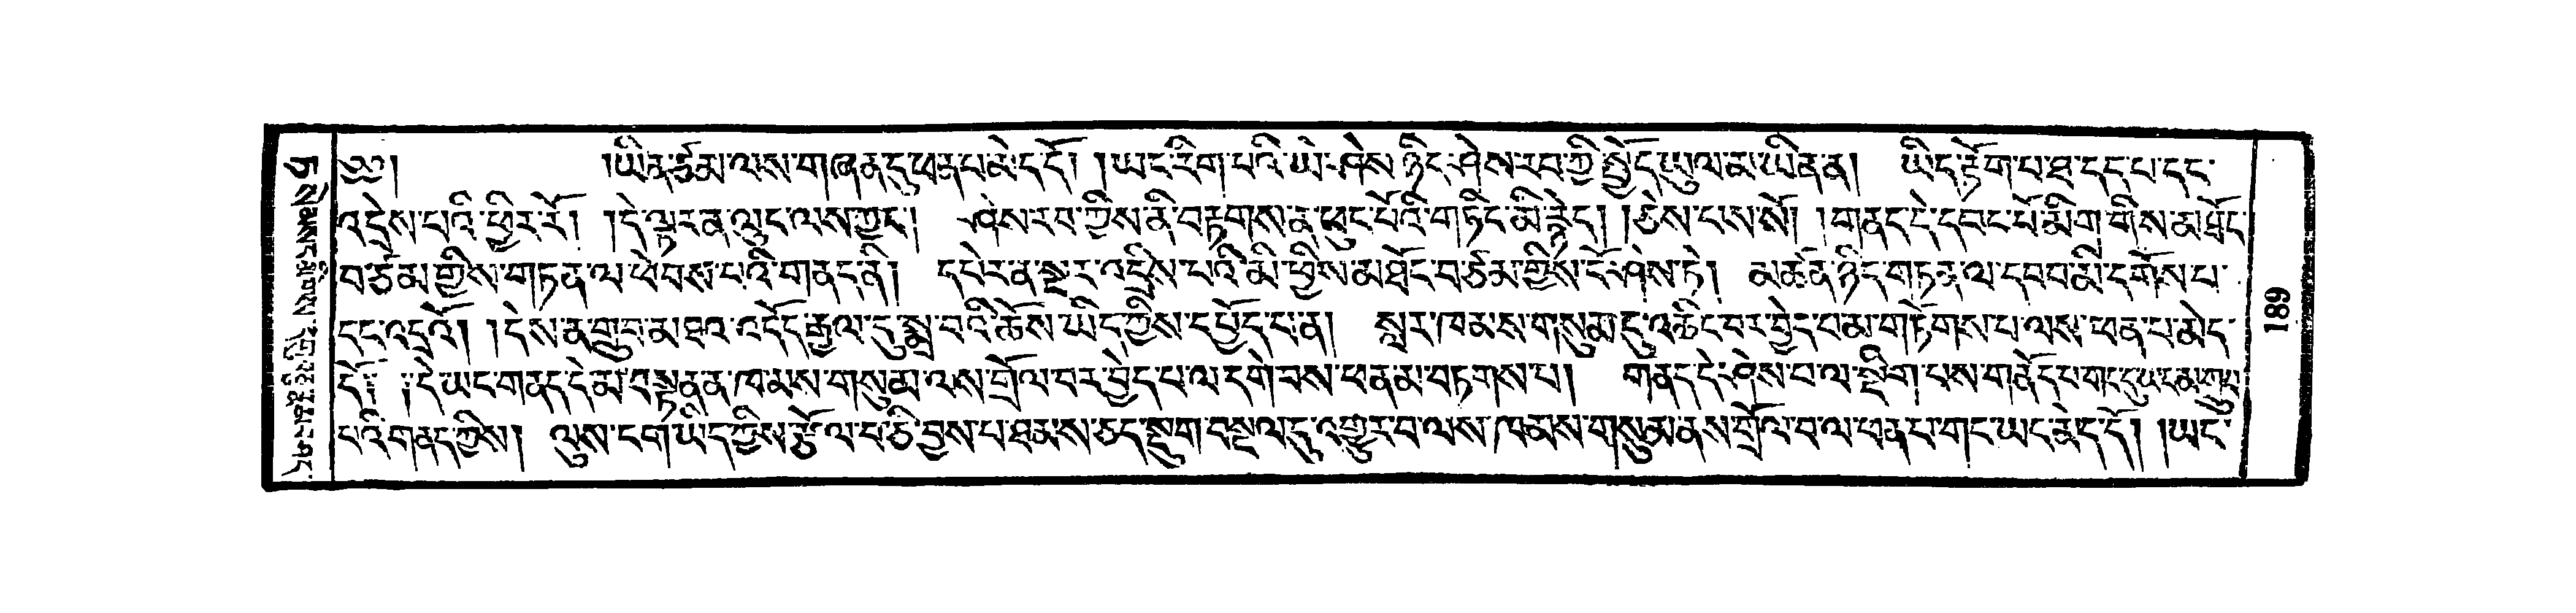 ༄༅། །ཡིན་ཙམ་ལས་གཞན་དུ་ཕན་པ་མེད་དོ། །ཡང་རིག་པའི་ཡེ་ཤེས་ཉིད་ཤེས་རབ་ཀྱི་སྤྱོད་ཡུལ་མ་ཡིན་ན། ཡིད་རྟོག་པ་ཐ་དད་པ་དང་
འདྲེས་པའི་ཕྱིར་རོ། །དེ་ལྟར་ན་ལུང་ལས་ཀྱང་། ཤེས་རབ་ཀྱིས་ནི་བརྟགས་ན་ཕུང་པོའི་གཏིང་མི་རྙེད། །ཅེས་ངས་སོ། །གནད་དེ་དབང་པོ་མིག་གིས་མཐོང་
བ་ཙམ་གྱིས་གཏན་ལ་ཕེབས་པའི་གནད་ནི། དཔེར་ན་སྔར་འདྲིས་པའི་མི་ཕྱིས་མཐོང་བ་ཙམ་གྱིས་ངོ་ཤེས་ཏེ། མཚན་ཉིད་གཏན་ལ་དབབ་མི་དགོས་པ་
དང་འདྲའོ། །དེས་ན་གྲུབ་མཐའ་འདོད་རྒྱལ་དུ་སྨྲ་བའི་ཆོས་ཡིད་ཀྱིས་དཔྱོད་པ་ན། སླར་ཁམས་གསུམ་དུ་འཆིང་བར་བྱེད་པམ་གཏོགས་པ་ལས་ཕན་པ་མེད་
དོ། །དེ་ཡང་གནད་དེ་མ་བསྟན་ན་ཁམས་གསུམ་ལས་གྲོལ་བར་བྱེད་པ་ལ་དགེ་བས་ཕན་མ་བཏགས་པ། གནད་དེ་ཤེས་བ་ལ་སྡིག་པས་གནོད་པ་གང་དུ་ཡང་མ་གྲུབ་
པའི་གནད་ཀྱིས། ལུས་ངག་ཡིད་ཀྱིས་རྩོལ་བ་ཅི་བྱས་པ་ཐམས་ཅད་སྡུག་བསྔལ་དུ་འགྱུར་བ་ལས་ཁམས་གསུམ་ནས་གྲོལ་བ་ལ་ཕན་པ་གང་ཡང་མེད་དོ། །ཡང་
189